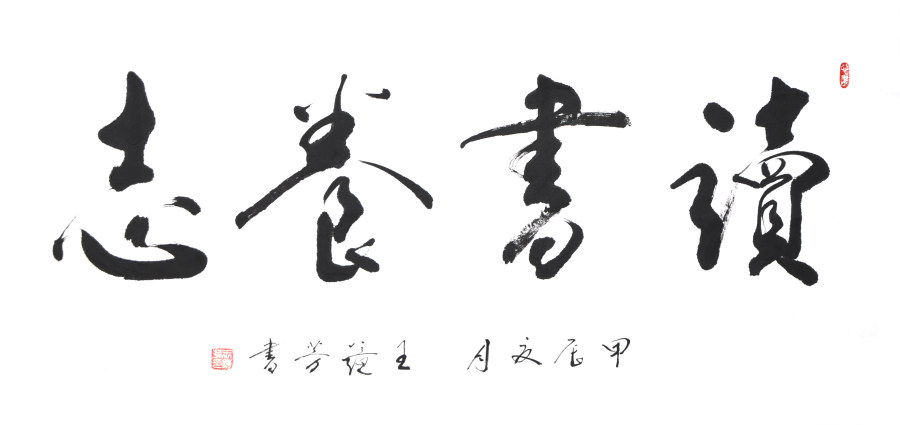 讀書養志
甲辰夏月 王 芳書